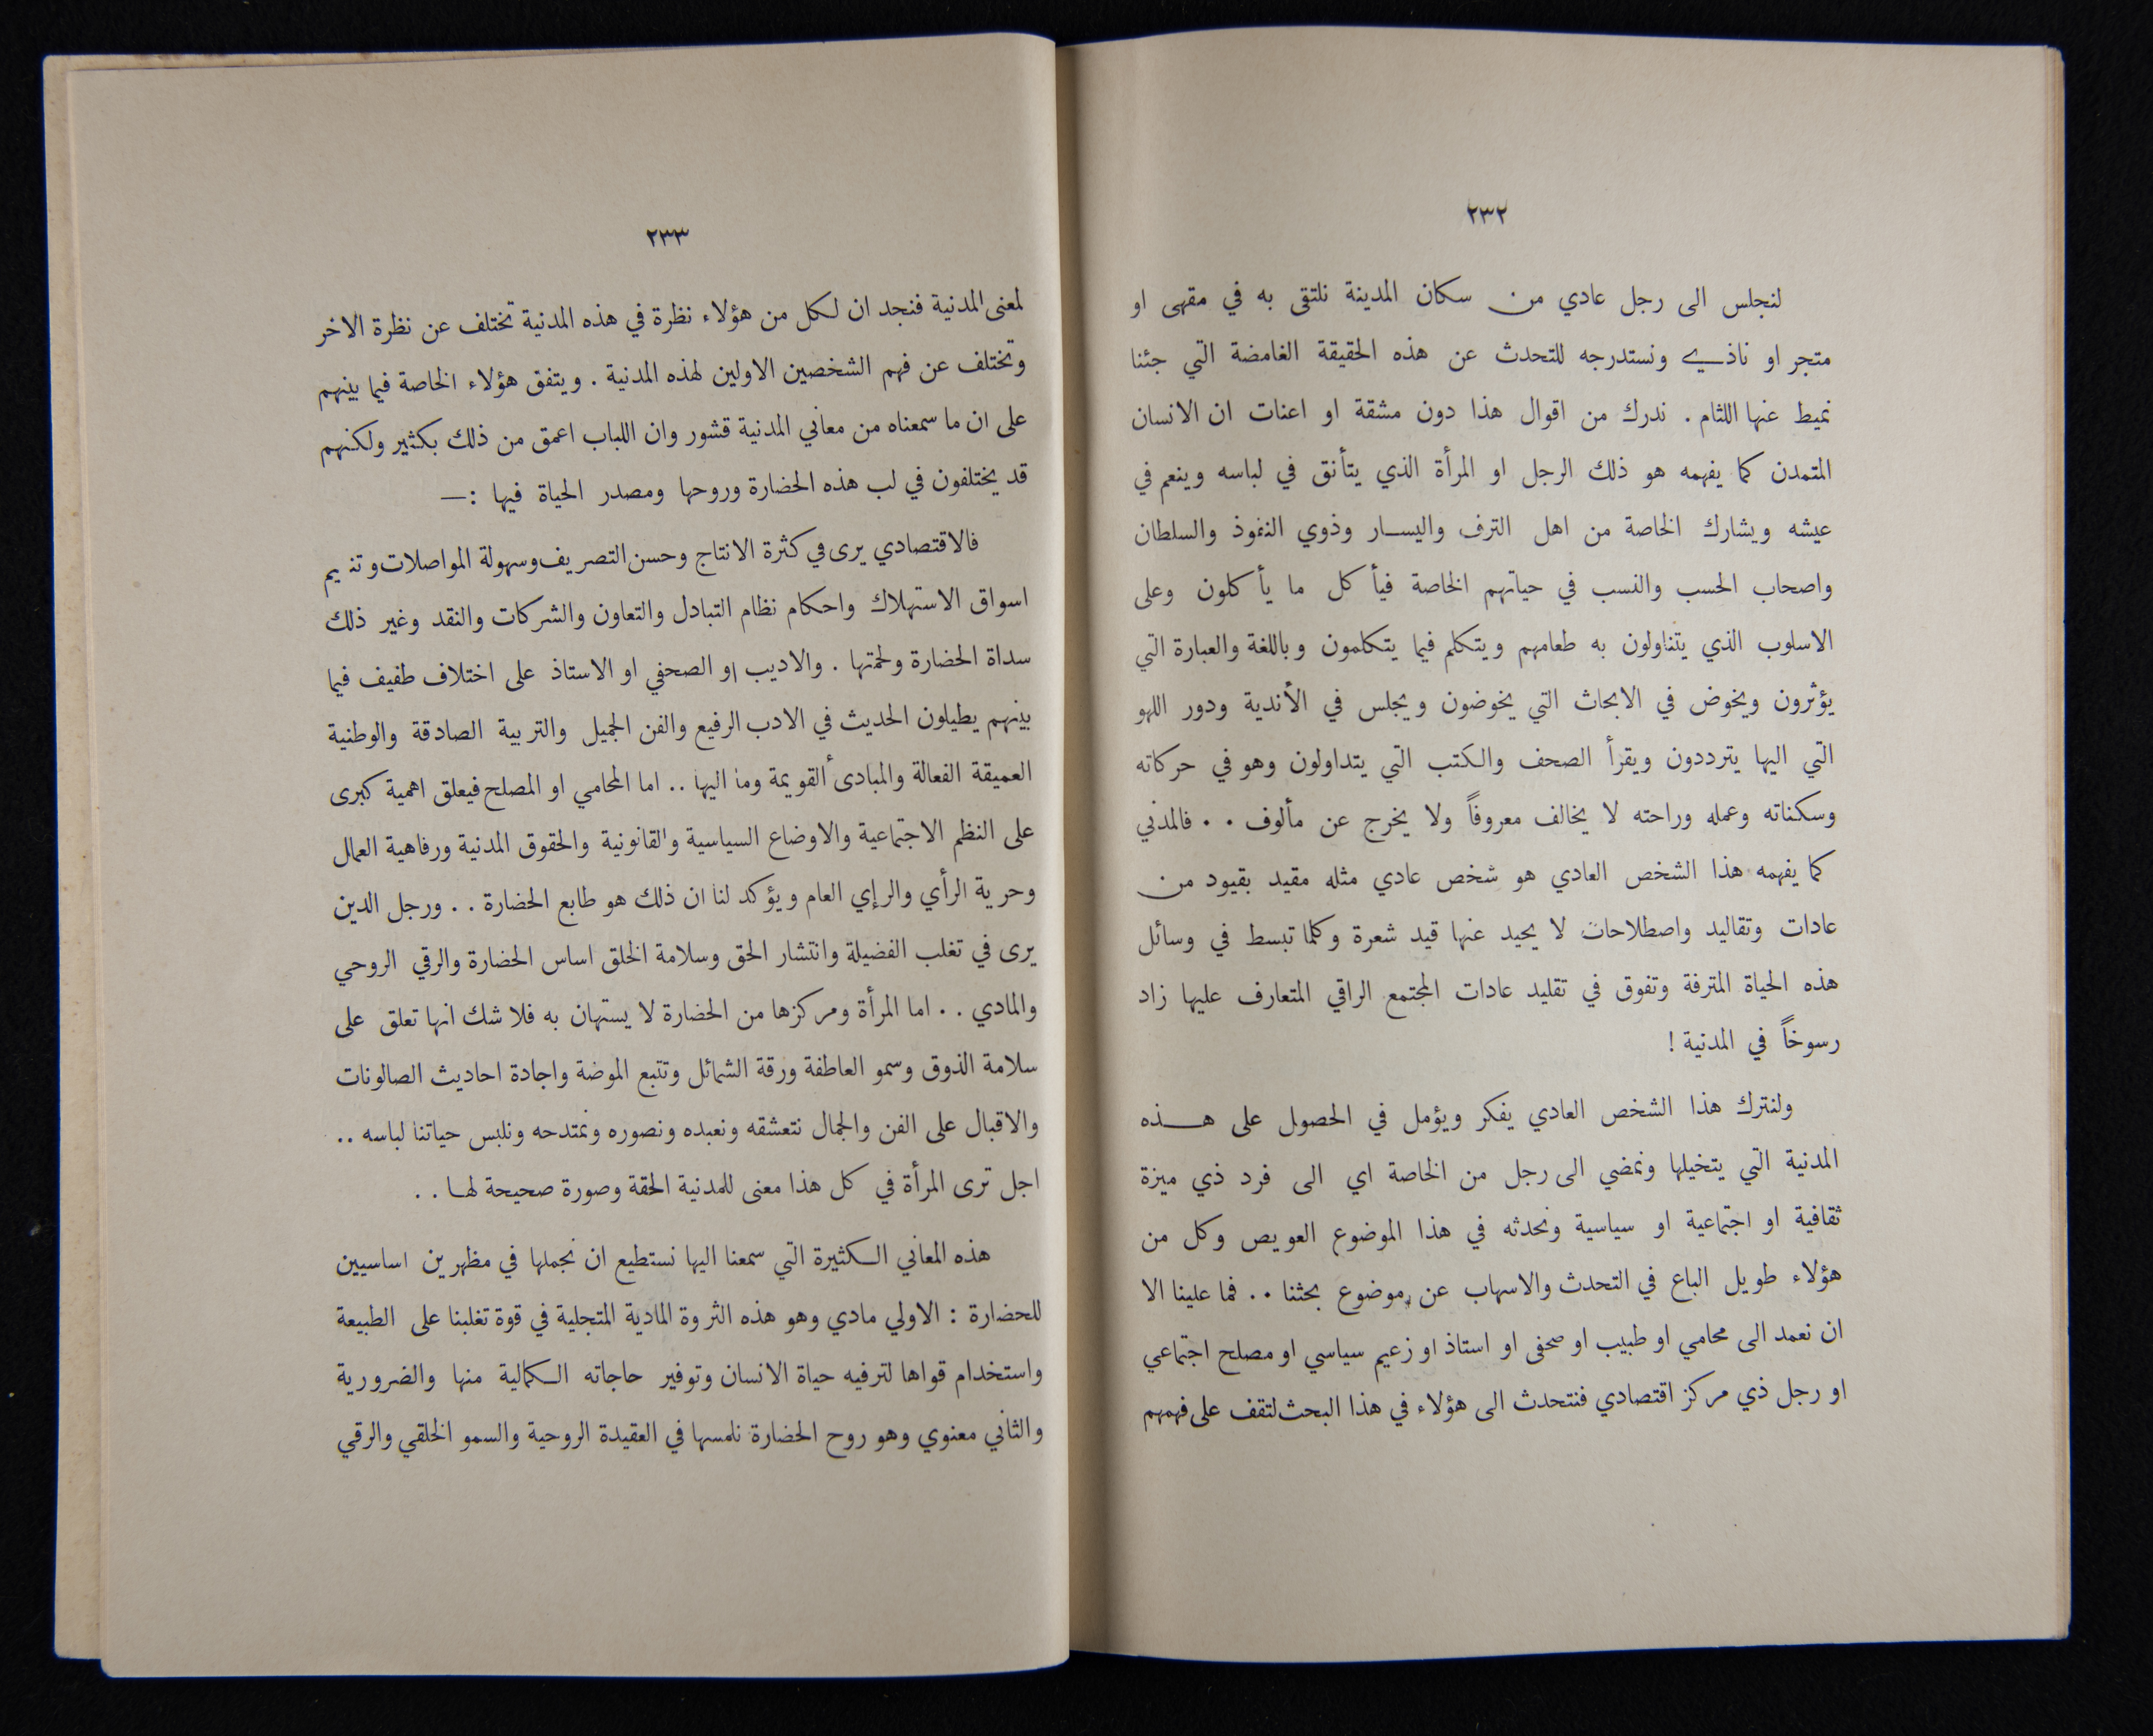 ٢٣٢
لنجلس الى رجل عادي من سكان المدينة نلتقى به في مقهى او
متجر او ناذي ونستدرجه للتحدث عن هذه الحقيقة الغامضة التي جئنا
نميط عنها اللثام . ندرك من اقوال هذا دون مشقة او اعنات ان الانسان
المتمدن كما يفهمه هو ذلك الرجل او المرأة الذي يتأنق في لباسه وينعم في
عيشه ويشارك الخاصة من اهل الترف واليسار وذوي النفوذ والسلطان
واصحاب الحسب والنسب في حياتهم الخاصة فيأكل ما يأكلون وعلى
الاسلوب الذي يتناولون به طعامهم ويتكلم فيما يتكلمون وباللغة والعبارة التي
يؤثرون ويخوض في الابحاث التي يخوضون ويجلس في الأندية ودور اللهو
التي اليها يترددون ويقرأ الصحف والكتب التي يتداولون وهو في حركاته
وسكناته وعمله وراحته لا يخالف معروفاً ولا يخرج عن مألوف . . فالمدني
كما يفهمه هذا الشخص العادي هو شخص عادي مثله مقيد بقيود من
عادات وتقاليد واصطلاحات لا يحيد عنها قيد شعرة وكلما تبسط في وسائل
هذه الحياة المترفة وتفوق في تقليد عادات المجتمع الراقي المتعارف عليها زاد
رسوخاً في المدنية !
ولنترك هذا الشخص العادي يفكر ويؤمل في الحصول على هذه
المدنية التي يتخيلها ونمضي الى رجل من الخاصة اي الى فرد ذي ميزة
ثقافية او اجتماعية او سياسية ونحدثه في هذا الموضوع العويص وكل من
هؤلاء طويل الباع في التحدث والاسهاب عن موضوع بحثنا . . فما علينا الا
ان نعمد الى محامي او طبيب او صحفى او استاذ او زعيم سياسي او مصلح اجتماعي
او رجل ذي مركز اقتصادي فنتحدث الى هؤلاء في هذا البحث لتقف على فهمهم
٢٣٣
لمعنى المدنية فنجد ان لكل من هؤلاء نظرة في هذه المدنية تختلف عن نظرة الاخر
وتختلف عن فهم الشخصين الاولين لهذه المدنية . ويتفق هؤلاء الخاصة فيما بينهم
على ان ما سمعناه من معاني المدنية قشور وان اللباب اعمق من ذلك بكثير ولكنهم
قد يختلفون في لب هذه الحضارة وروحها ومصدر الحياة فيها :—
فالاقتصادي يرى في كثرة الانتاج وحسن التصريف وسهولة المواصلات
اسواق الاستهلاك واحكام نظام التبادل والتعاون والشركات والنقد وغير ذلك
سداة الحضارة ولحمتها . والاديب او الصحفي او الاستاذ على اختلاف طفيف فيما
بينهم يطيلون الحديث في الادب الرفيع والفن الجميل والتربية الصادقة والوطنية
العميقة الفعالة والمبادىٔ القويمة وما اليها .. اما المحامي او المصلح فيعلق اهمية كبرى
على النظم الاجتماعية والاوضاع السياسية والقانونية والحقوق المدنية ورفاهية العمال
وحرية الرأي والرإي العام ويؤكد لنا ان ذلك هو طابع الحضارة . . ورجل الدين
يرى في تغلب الفضيلة وانتشار الحق وسلامة الخلق اساس الحضارة والرقي الروحي
والمادي . . اما المرأة ومركزها من الحضارة لا يستهان به فلا شك انها تعلق على
سلامة الذوق وسمو العاطفة ورقة الشمائل وتتبع الموضة واجادة احاديث الصالونات
والاقبال على الفن والجمال نتعشقه ونعبده ونصوره ونمتدحه ونلبس حياتنا لباسه ..
اجل ترى المرأة في كل هذا معنى للمدنية الحقة وصورة صحيحة لها . .
هذه المعاني الكثيرة التي سمعنا اليها نستطيع ان نجملها في مظهرين اساسيين
للحضارة : الاولي مادي وهو هذه الثروة المادية المتجلية في قوة تغلبنا على الطبيعة
واستخدام قواها لترفيه حياة الانسان وتوفير حاجاته الكمالية منها والضرورية
والثاني معنوي وهو روح الحضارة نلمسها في العقيدة الروحية والسمو الخلقي والرقي